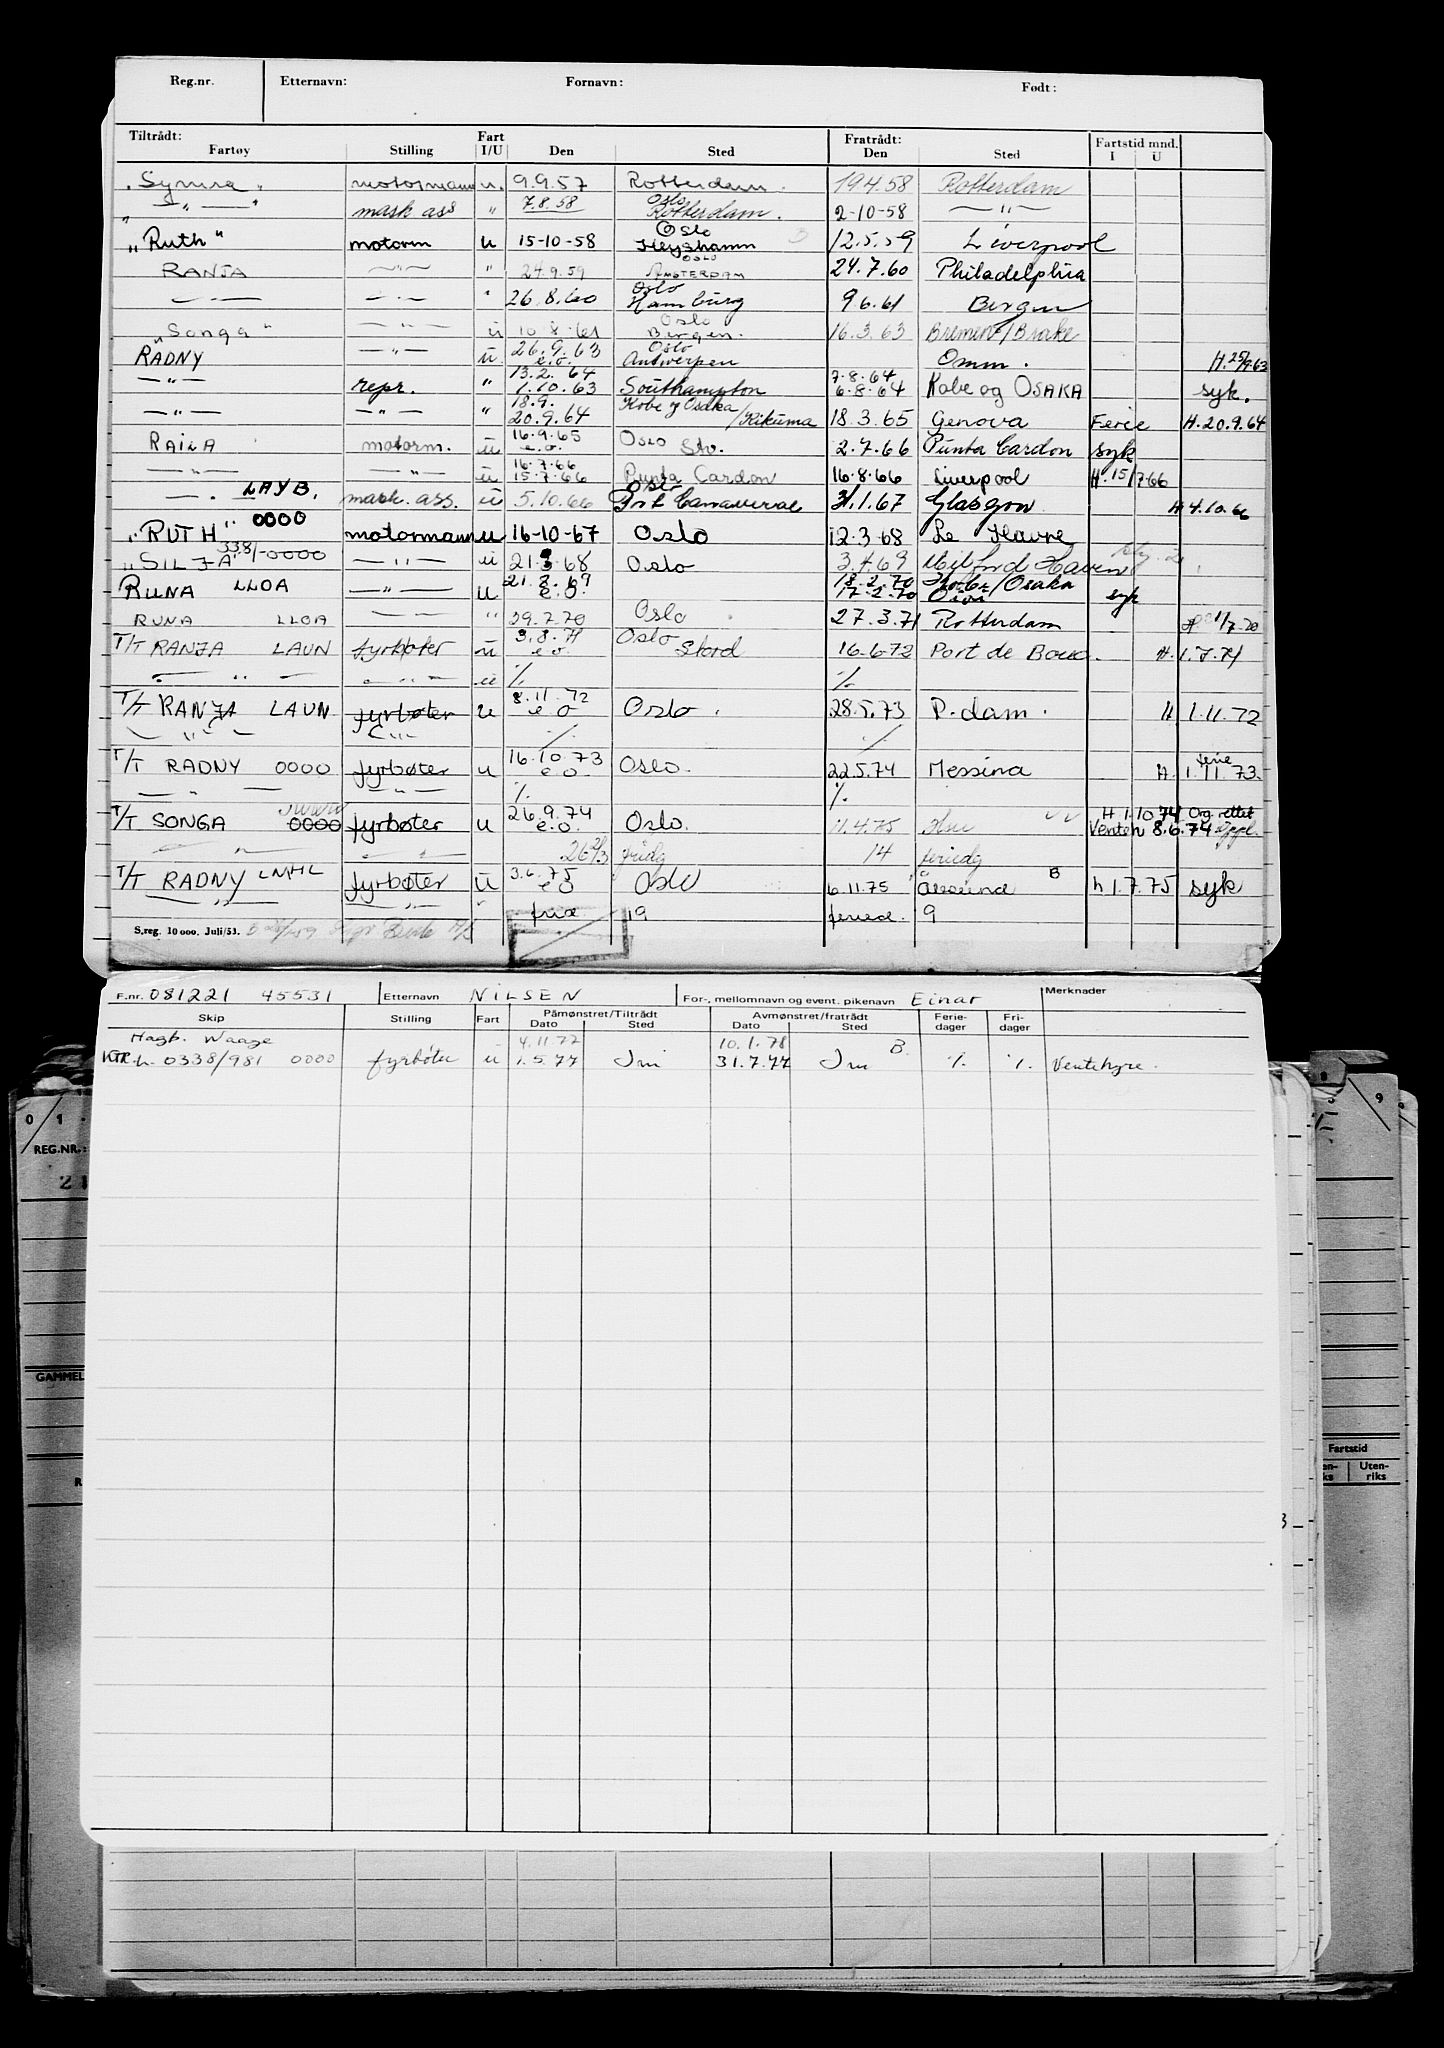 Reg.nr. Etternavn: Fornavn: Født:
Tiltrådt: Fart Fratrådt: Fartstid mnd.
Fartøy Stilling I/U Den Sted Den Sted I U
"Symra" motormann u. 9.9.57 Rotterdam. 19.4.58 Rotterdam
7.8.58 Oslo
" — " — " mask ass " Rotterdam. 2-10-58 — " —
Oslo
"Ruth" motorm u 15-10-58 Heysham 12.5.59 Liverpool
Oslo
RANJA — " — " 24.9.59 AMSTERDAM 24.7.60 Philadelphia
Oslo
— " — — " — " 26.8.60 Hamburg 9.6.61 Bergen
Oslo
"Songa" — " — u 10.8.61 Bergen. 16.3.63 Bremen/Brake
26.9.63 Oslo
RADNY — " — u. e.o. Antwerpen Omm. H. 25/9.63
13.2.64 7.8.64
— " — repr. " 1.10.63 Southampton 6.8.64 Kobe og OSAKA syk.
18.9. Kobe og Osaka
— " — — " — " 20.9.64 /Kikuma 18.3.65 Genova Ferie H. 20.9.64
16.9.65 Oslo
RAILA motorm. u e.o. Stv. 2.7.66 Punta Cardon syk
16.7.66
— " — — " — u 15.7.66 Punta Cardon 16.8.66 Liverpool H. 15/7.66
LAYB. Oslo
— " — mask. ass. u 5.10.66 Port Canaveral 31.1.67 Glasgow H 4.10.66
0000
"RUTH" motormann u 16-10-67 Oslo 12-3-68 Le Havre
338/-0000
"SILJA" — " — u 21.9.68 Oslo 3.4.69 Milford Haven
21.8.69 18.2.70 Kobe/Osaka
RUNA LLOA — " — u e.o. 17.2.70 syk
RUNA LLOA " 29.7.70 Oslo 27.3.71 Rotterdam 1/7.70
3.8.71 Oslo
T/T RANJA LAUN fyrbøter u e.o. Stord 16-6-72 Port de Bouc. H. 1.7.71
— " — — " — u % %
8.11.72
T/T RANJA LAUN fyrbøter u e.o Oslo. 28.5.73 R.dam. H 1.11.72
— " — " — — " — % %
16.10.73 ferie
T/T RADNY 0000 fyrbøter u e.o. Oslo. 22.5.74 Messina H. 1.11.73.
— " — — " — % %
26.9.74 H 1.10.74 Org. rettet
T/T SONGA 0000 fyrbøter u e.o. Oslo. 11.4.75 Vente h 8.6.74
— " — — " — 14 feriedg
3.6.75 B
T/T RADNY LMHL fyrbøter u e.o Oslo 6.11.75 Ålesund h 1.7.75 syk
— " — — " — " 19 feried. 9
S.reg. 10 000. Juli/53.
F.nr. 081221 45531 Etternavn NILSEN For-, mellomnavn og event. pikenavn Einar Merknader
Skip Stilling Fart Påmønstret/Tiltrådt Avmønstret/fratrådt Ferie- Fri-
Dato Sted Dato Sted dager dager
Hagb. Waage 4.11.77 10.1.78 B.
KTR.h. 0338/981 0000 fyrbøter u 1.5.77 31.7.77 % %. Ventehyre.
0 1
REG.NR.:
21
GAMMEL
R
9
Fartstid
en- Uten-
ks riks
3